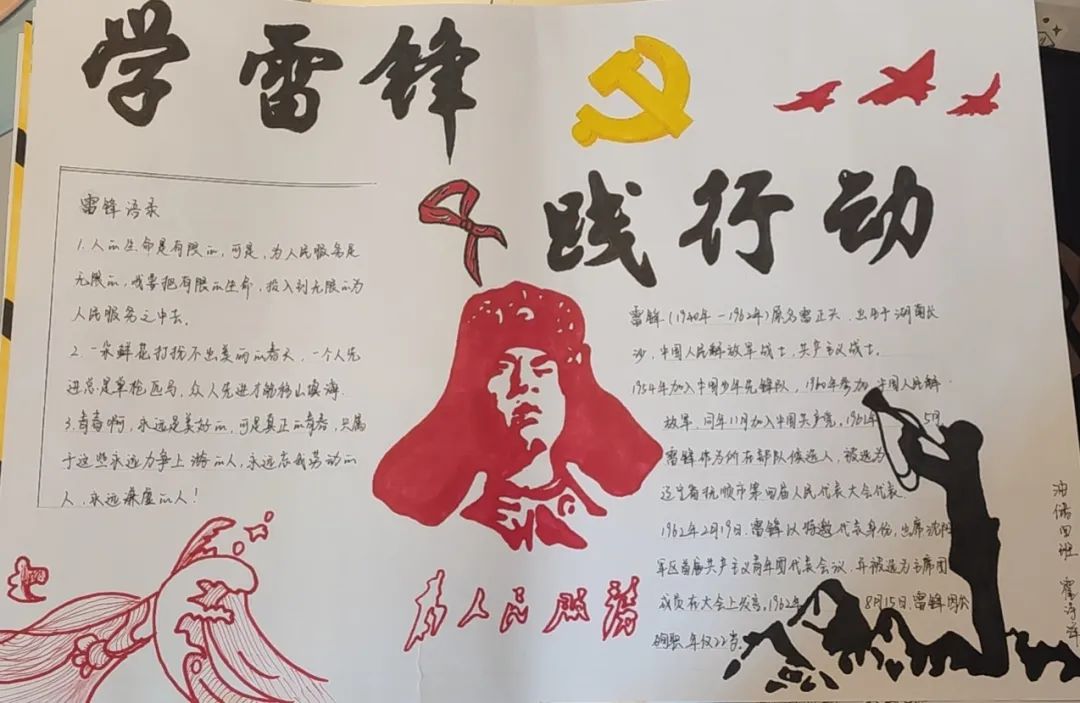 学雷锋
践行动
雷锋语录
1.人的生命是有限的,可是,为人民服务是
无限的,我要把有限的生命,投入到无限的为
人民服务之中去。
2.一朵鲜花打扮不出美丽的春天,一个人先
进总是单枪匹马,众人先进才能移山填海.
3.青春啊,永远是美好的,可是真正的青春,只属
于这些永远力争上游的人,永远忘我劳动的
人,永远谦虚的人!
雷锋(1940年-1962年)原名雷正兴,出生于湖南长
沙,中国人民解放军战士,共产主义战士。
1954年加入中国少年先锋队,1960年参加中国人民解
放军,同年11月加入中国共产党。1961年 5月
雷锋作为所在部队候选人,被选为
辽宁省抚顺市第四届人民代表大会代表.
1962年2月19日,雷锋以特邀代表身份,出席沈阳
军区首届共产主义青年团代表会议,并被选为主席团
成员在大会上发言。1962年 8月15日,雷锋因公
殉职,年仅22岁。
为人民服务
油储四班